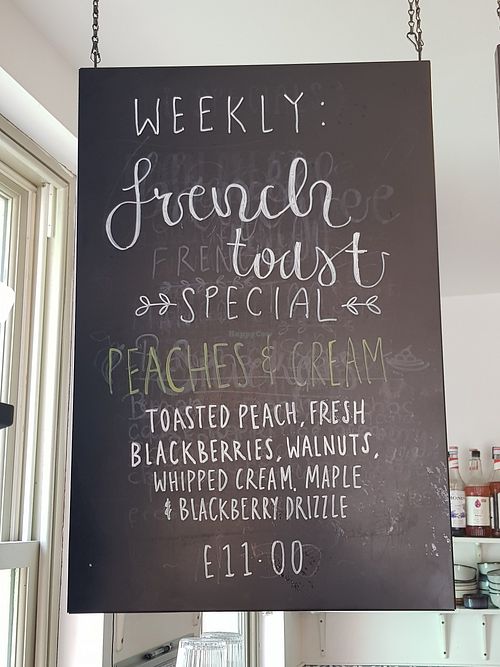 WEEKLY:
french
toast
SPECIAL
PEACHES & CREAM
TOASTED PEACH, FRESH
BLACKBERRIES, WALNUTS,
WHIPPED CREAM, MAPLE
& BLACKBERRY DRIZZLE
£11.00